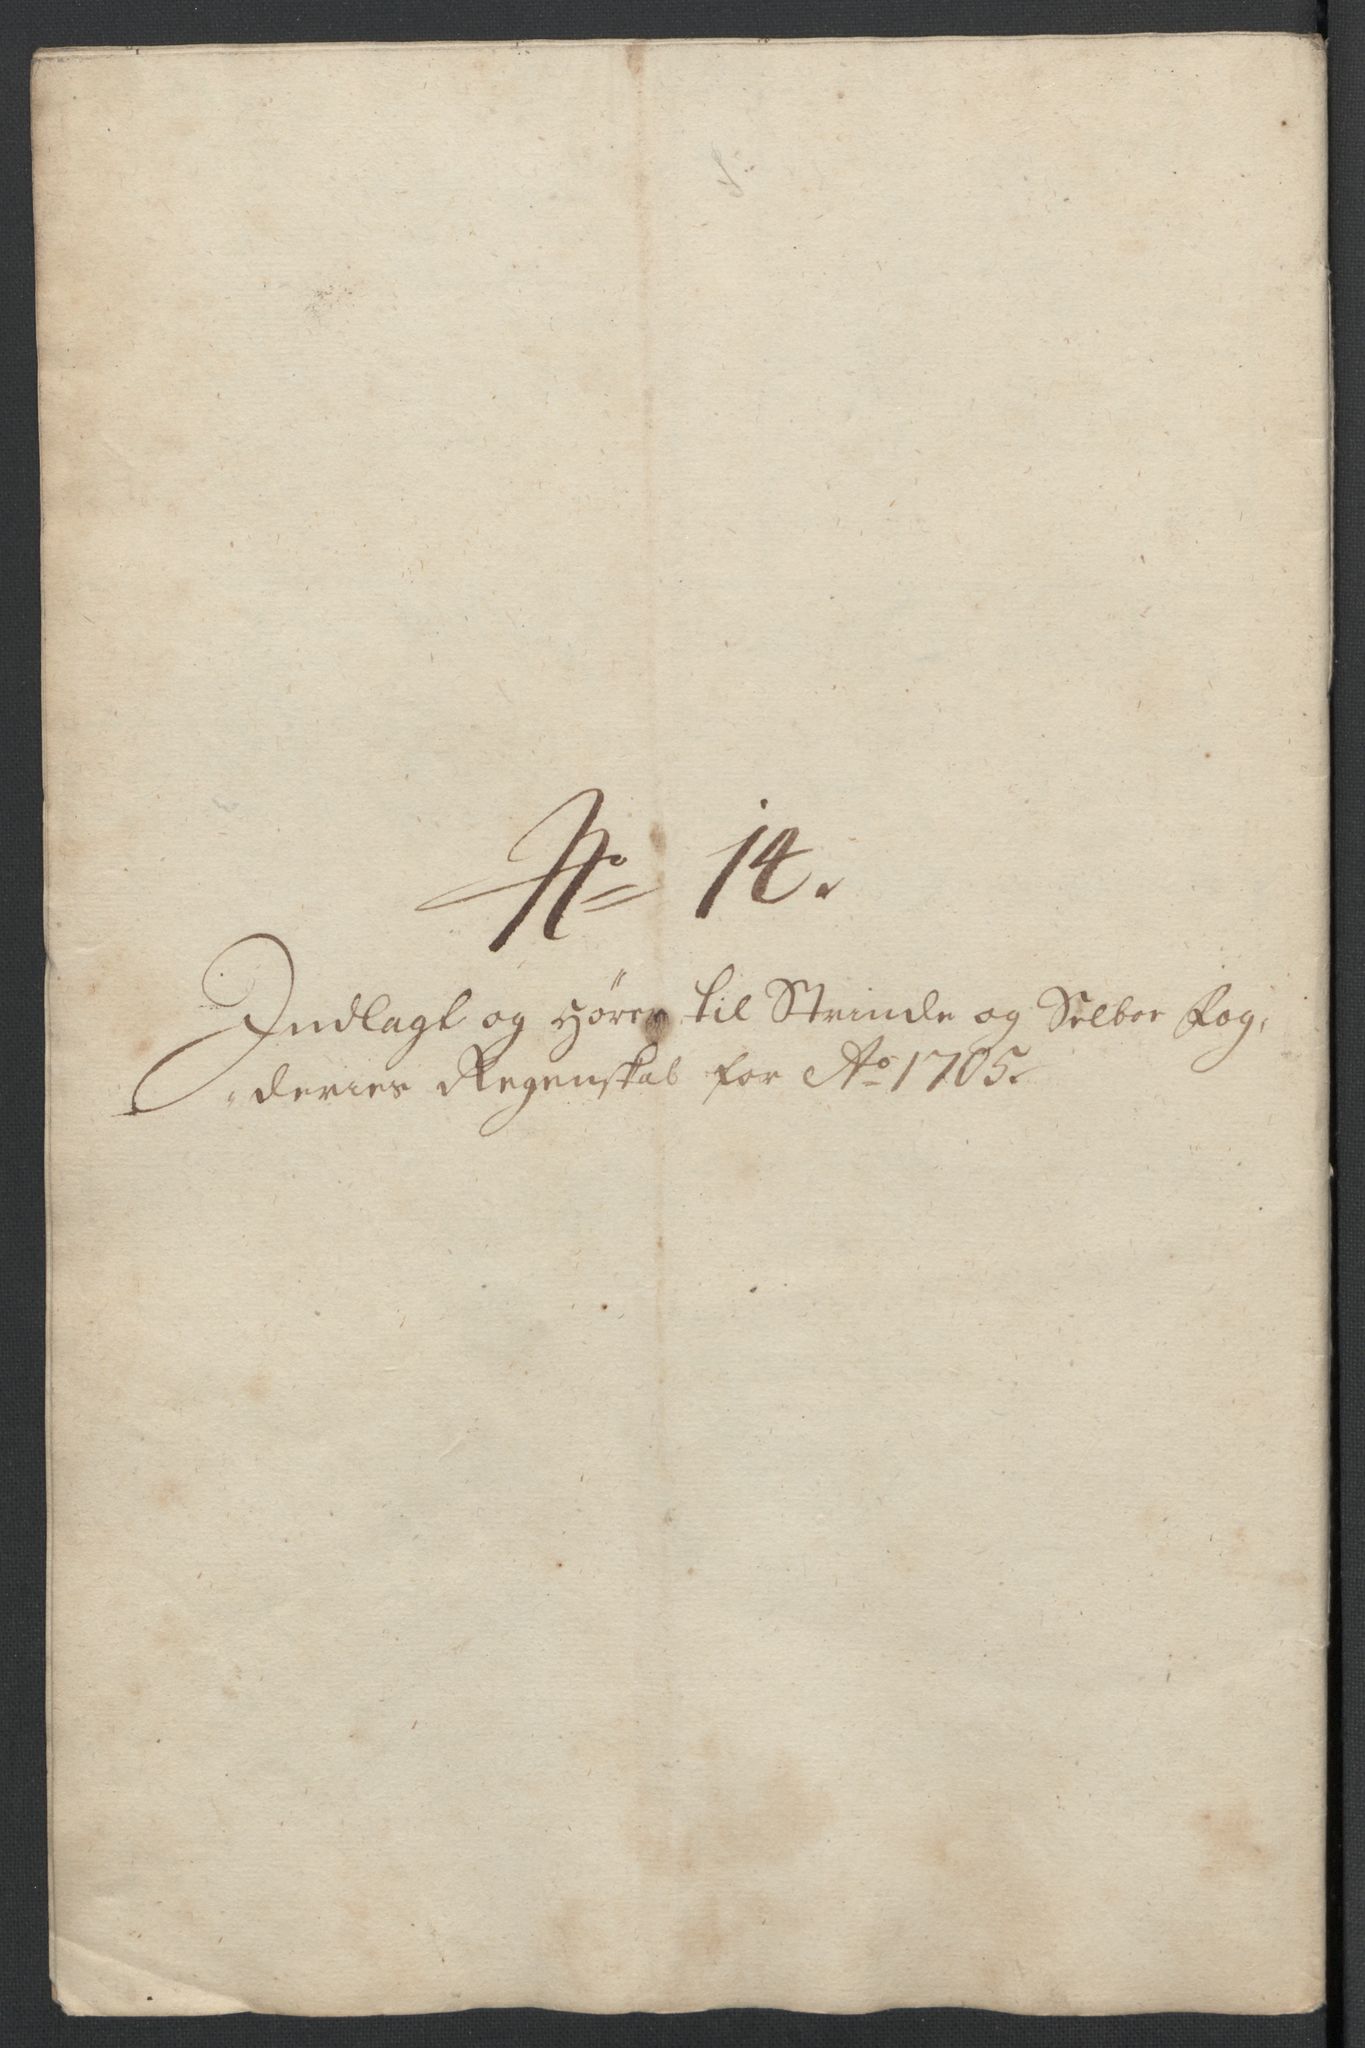 No 14.
Indlagt og hører til Strinde og Selboe Fog,
deries Regenskab for Ao 1705.